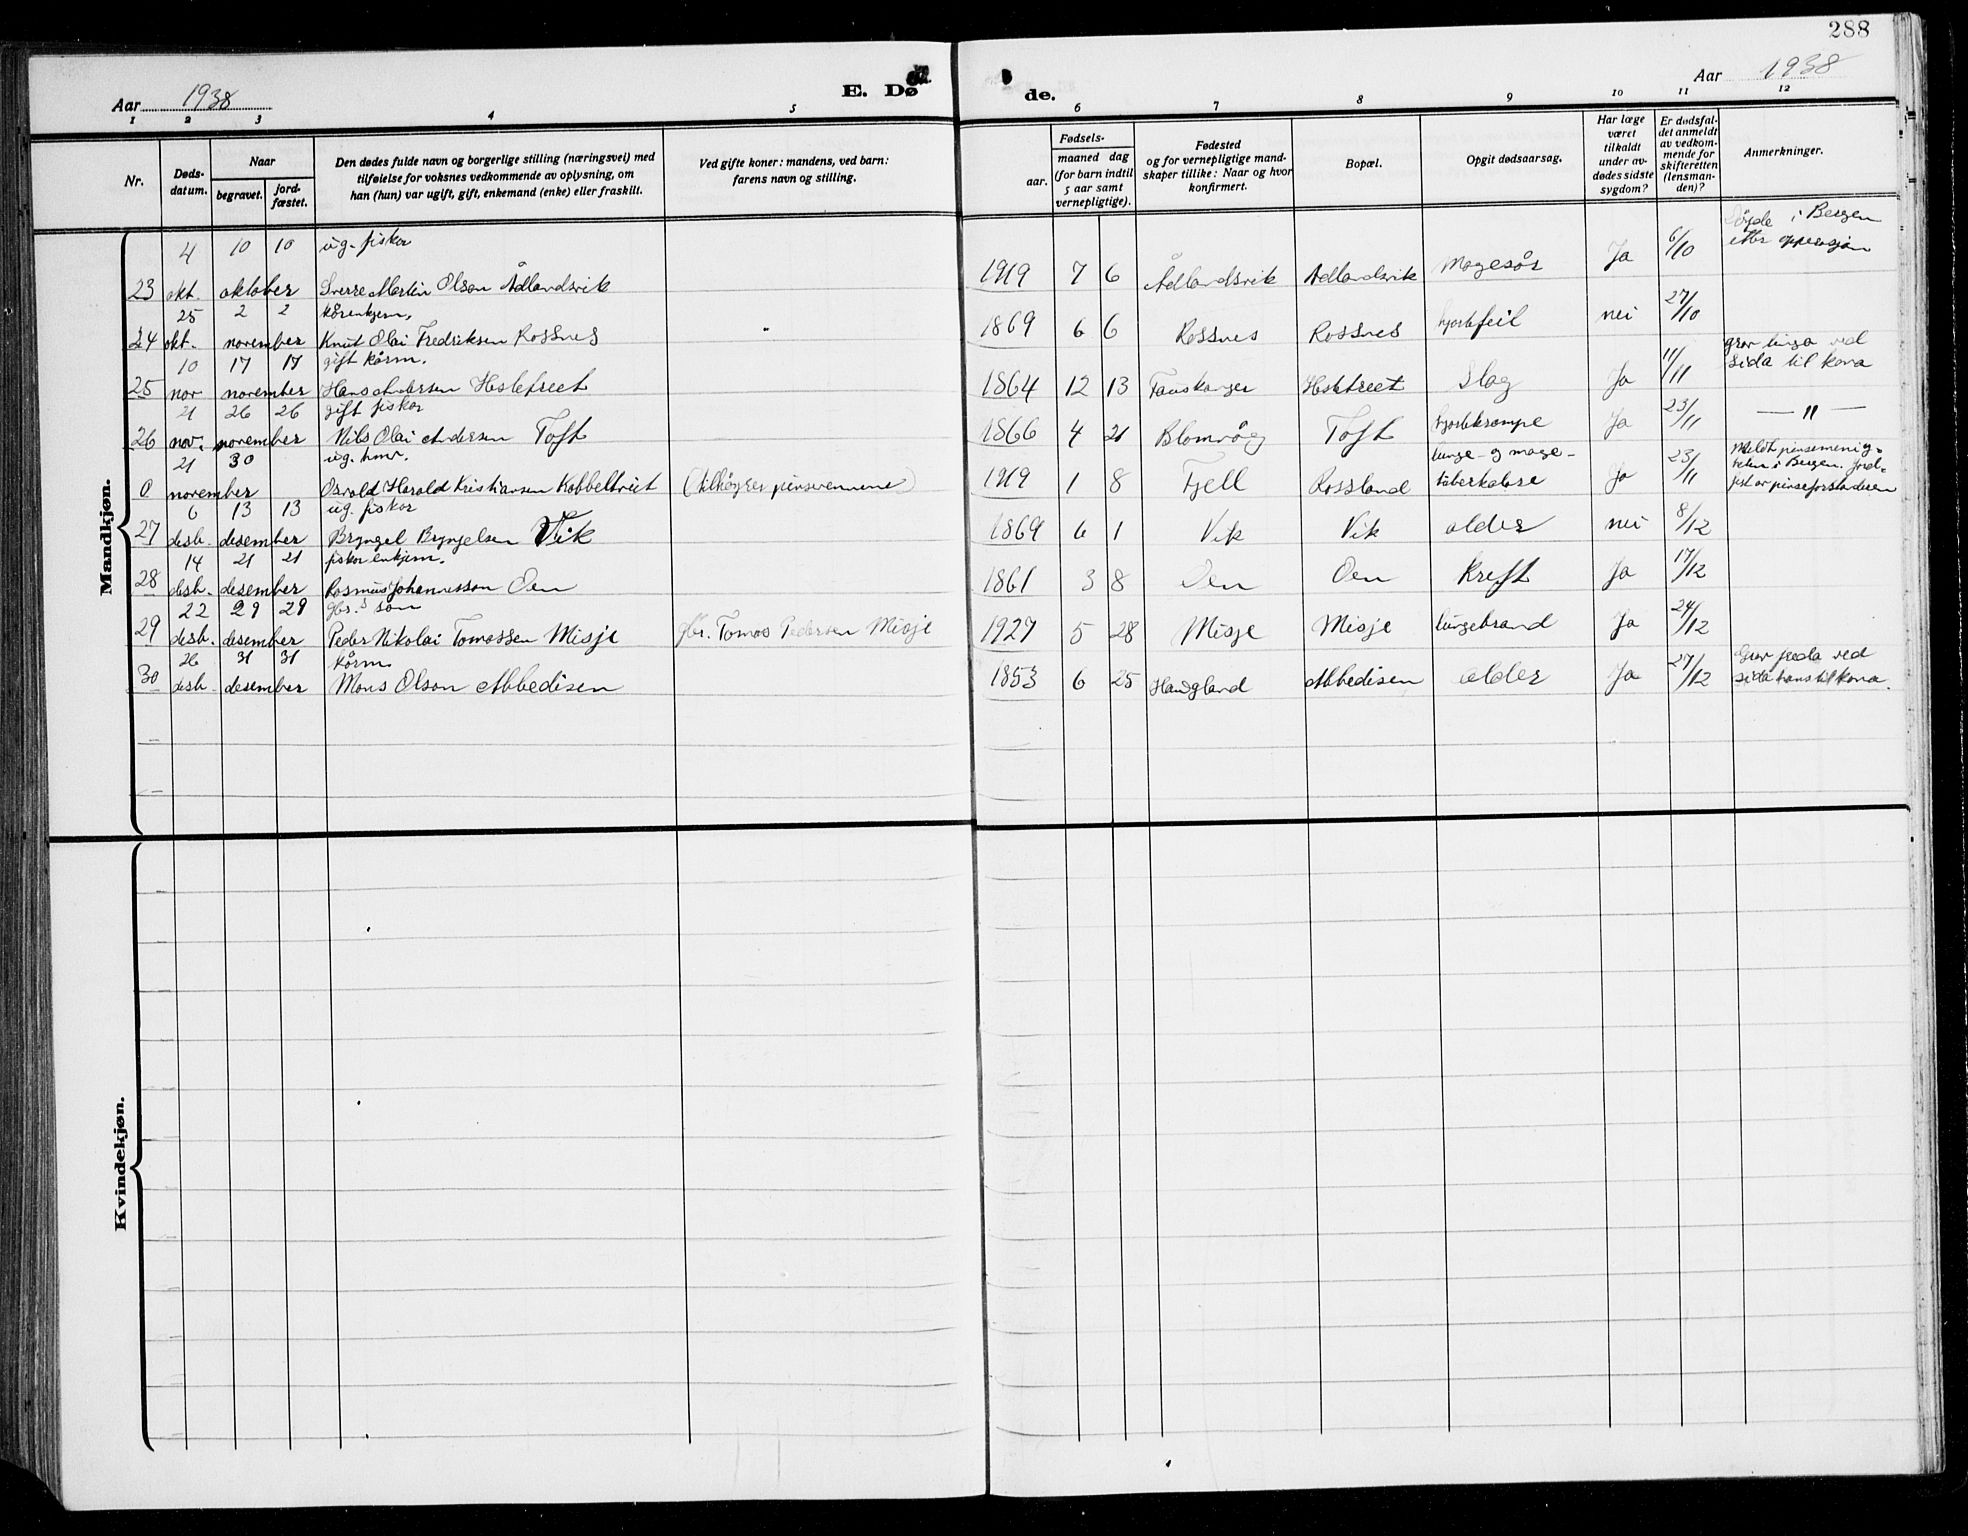 288
Aar 1938
E. Dø
de.
Aar 1938
1 2 3 4 5 6 7 8 9 10 11 12
Nr.
Døds-
datum.
Naar
begravet.
jord-
fæstet.
Den dødes fulde navn og borgerlige stilling (næringsvei) med
tilføielse for voksnes vedkommende av oplysning, om
han (hun) var ugift, gift, enkemand (enke) eller fraskilt.
Ved gifte koner: mandens, ved barn:
farens navn og stilling.
Fødsels-
aar.
maaned dag
(for barn indtil
5 aar samt
vernepligtige).
Fødested
og for vernepligtige mand-
skaper tillike: Naar og hvor
konfirmert.
Bopæl.
Opgit dødsaarsag.
Har læge
været
tilkaldt
under av-
dødes sidste
sygdom?
Er dødsfal-
det anmeldt
av vedkom-
mende for
skifteretten
(lensman-
den)?
Anmerkninger.
Mandkjøn.
4 10 10 ug. fiskar i Bergen
23 okt. oktober Sverre Martin Olson Ådlandsvik 1919 7 6 Ådlandsvik Ådlandsvik Magesår Ja 6/10 etter operasjon
25 2 2
24 okt. november Knut Olai Fredriksen Rossnes 1869 6 6 Rossnes Rossnes hjartefeil nei 27/10
10 17 17 gift kårm. grav langs ved
25 nov november Hans Andersen Hesletreet 1864 12 13 Fanskanger Hesletreet Slag Ja 11/11 sida til kona
21 26 26 gift fiskar
26 nov. november Nils Olai Andersen Toft 1866 4 21 Blomvåg Toft hjartekrampe Ja 23/11 — " —
21 30 ug. lunge- og mage- Meldt pinsemenig-
0 november Osvald Harald Kristiansen Kobbeltveit (tilhøyrer pinsevennene) 1919 1 8 Fjell Rossland tuberkulose Ja 23/11 heten i Bergen. Jord-
fest av pinseforstanderen
6 13 13 ug. fiskar
27 desb. desember Bryngel Bryngelsen Vik 1869 6 1 Vik Vik alder nei 8/12
14 21 21 fiskar enkjem.
28 desb. desember Rasmus Johannesson Oen 1861 3 8 Oen Oen Kreft Ja 17/12
22 29 29 gbr.s son
29 desb. desember Peder Nikolai Tomassen Misje gbr. Tomas Pedersen Misje 1927 5 28 Misje Misje lungebrand Ja 24/12
26 31 31 kårm. Grav freda ved
30 desb. desember Mons Olson Abbedisen 1853 6 25 Haugland Abbedisen alder Ja 27/12 sida hans til kona.
Kvindekjøn.